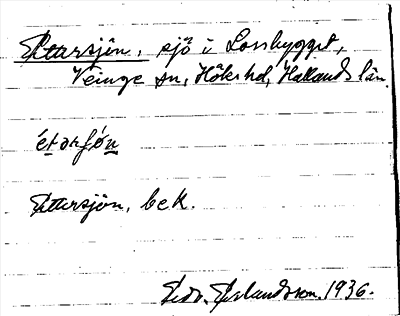 Ettersjön, sjö i Lossbygget,
Veinge sn, Höks hd, Hallands län.
étərʃǿn
Ettersjön, bek.
Erlandsson. 1936.